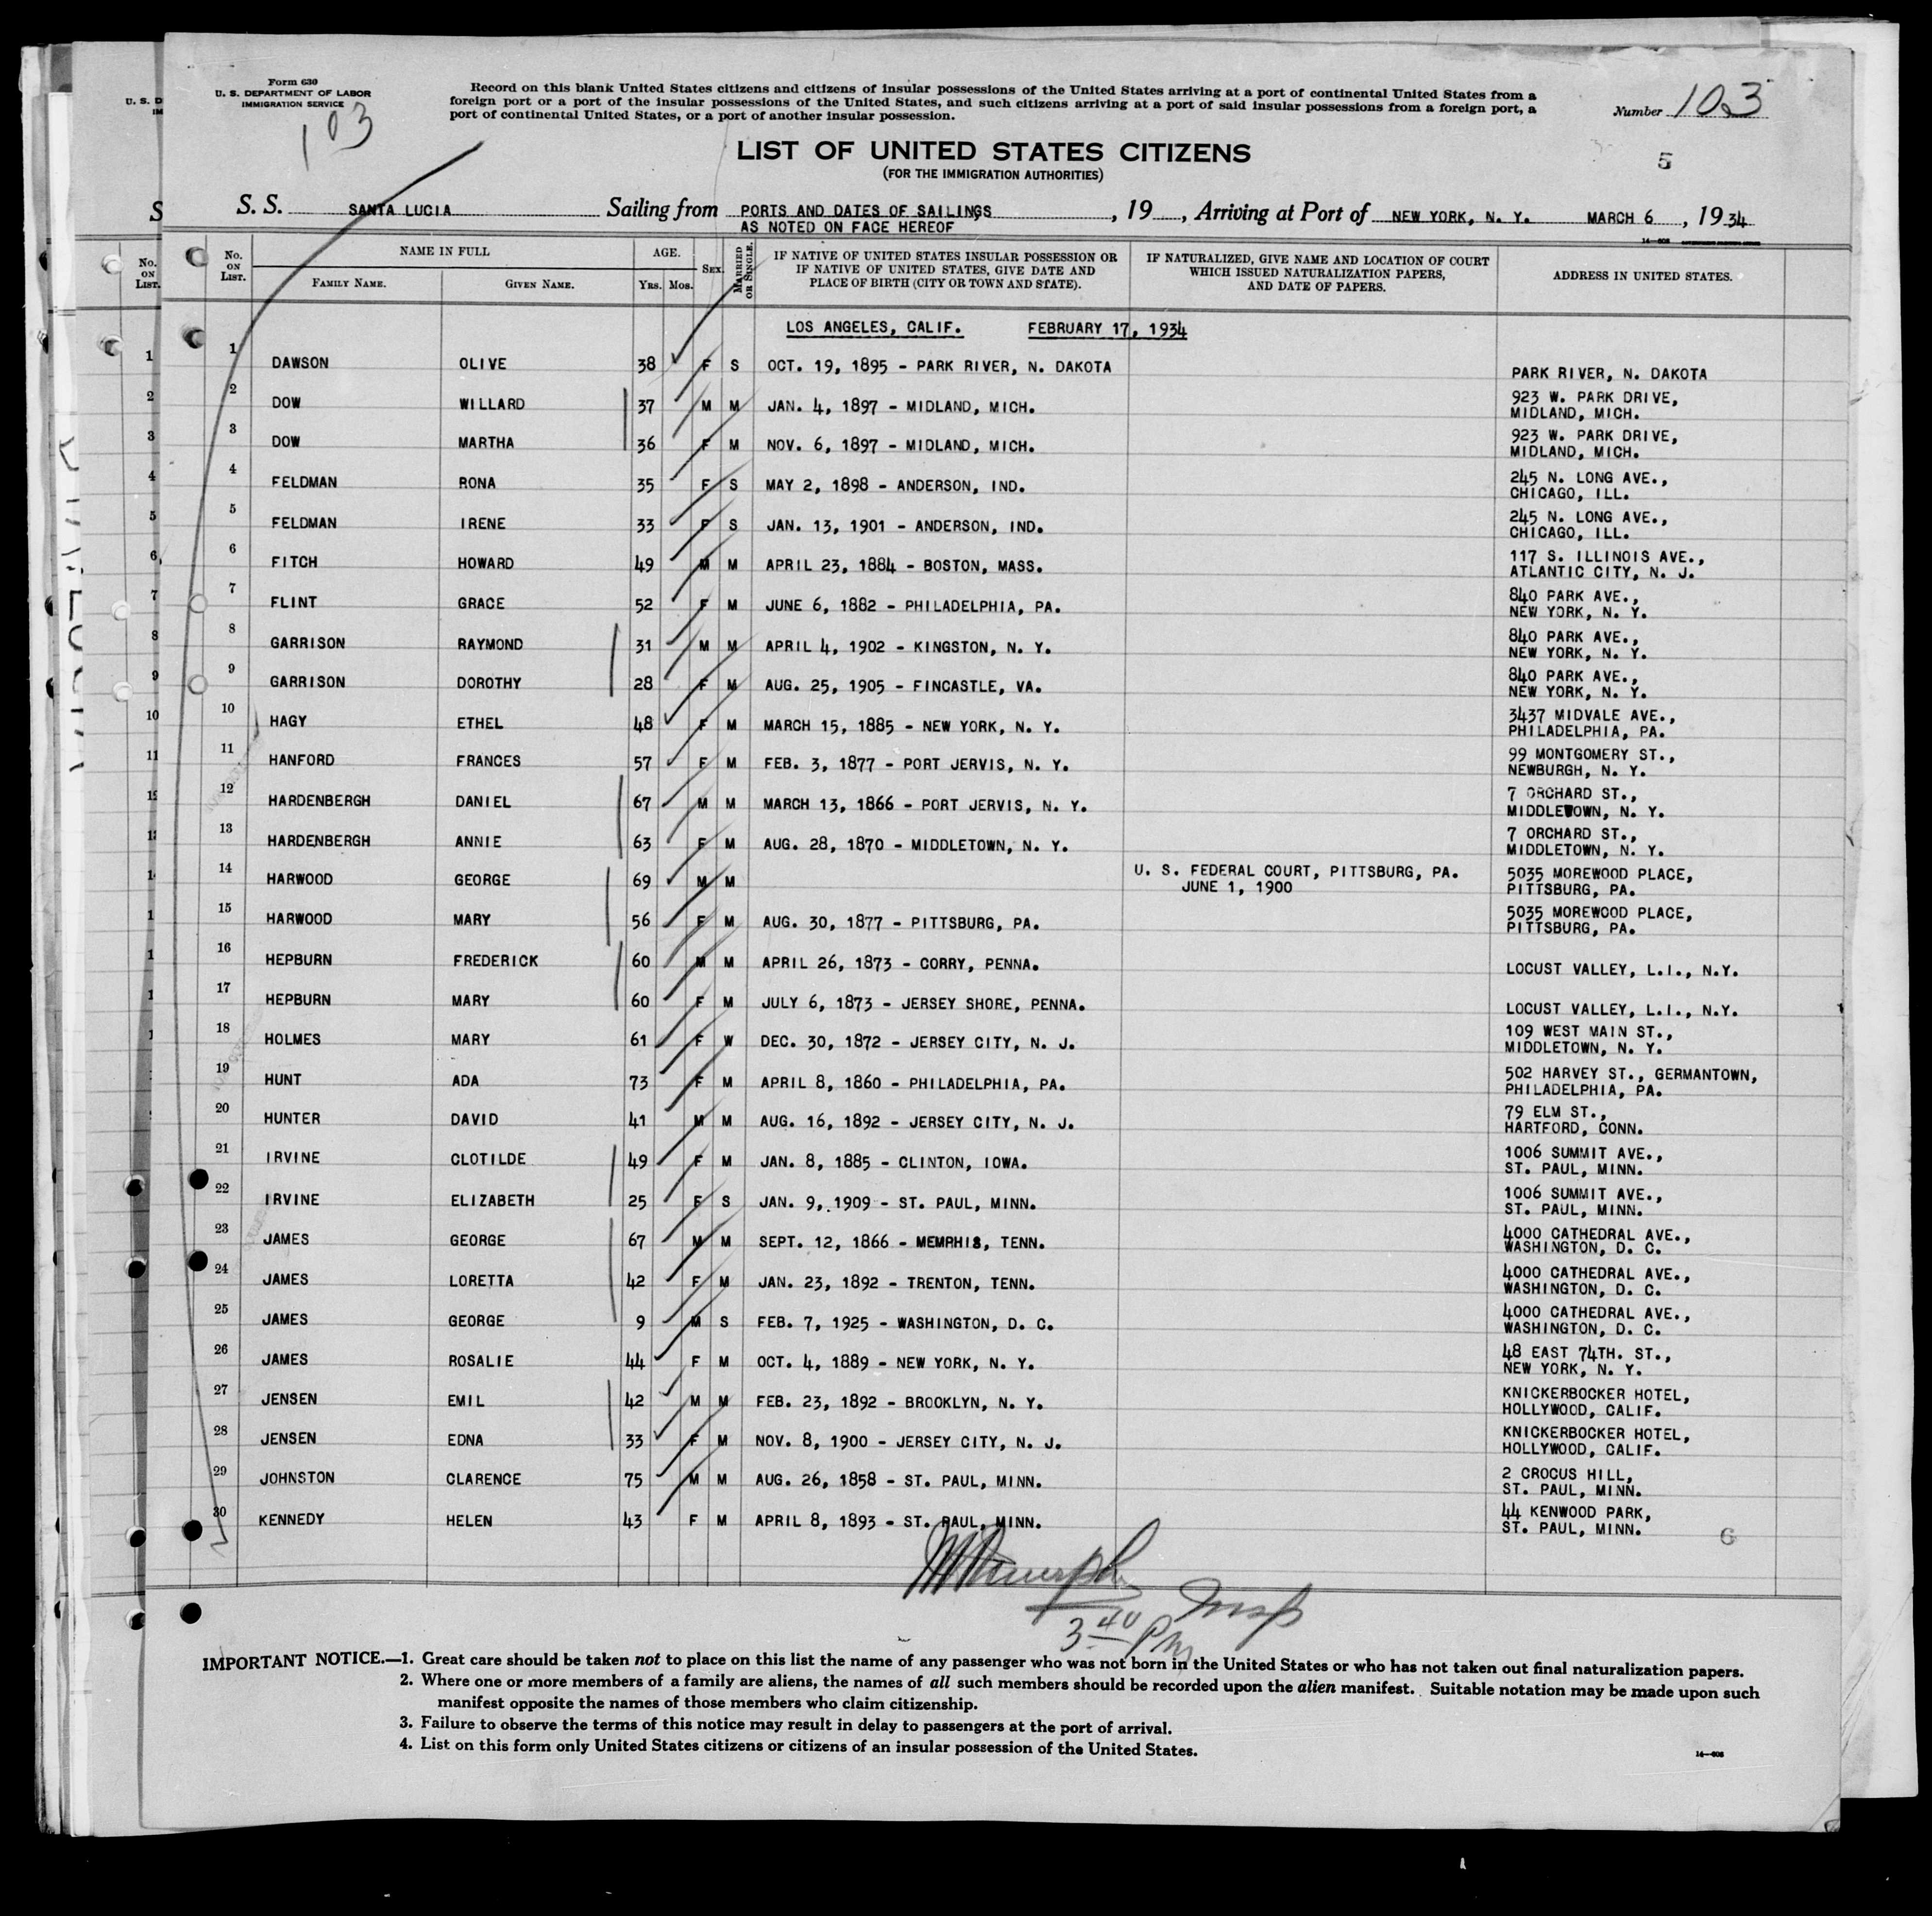 Form 630
U. S. DEPARTMENT OF LABOR
IMMIGRATION SERVICE
103
Record on this blank United States citizens and citizens of insular possessions of the United States arriving at a port of continental United States from a
foreign port or a port of the insular possessions of the United States, and such citizens arriving at a port of said insular possessions from a foreign port, a
port of continental United States, or a port of another insular possession.
Number 103
LIST OF UNITED STATES CITIZENS
(FOR THE IMMIGRATION AUTHORITIES)
5
S. S. SANTA LUCIA Sailing from PORTS AND DATES OF SAILINGS , 19 , Arriving at Port of NEW YORK, N. Y. MARCH 6 , 19 34
AS NOTED ON FACE HEREOF
No. ON LIST. NAME IN FULL AGE. SEX. MARRIED OR SINGLE. IF NATIVE OF UNITED STATES INSULAR POSSESSION OR IF NATIVE OF UNITED STATES, GIVE DATE AND PLACE OF BIRTH (CITY OR TOWN AND STATE). IF NATURALIZED, GIVE NAME AND LOCATION OF COURT WHICH ISSUED NATURALIZATION PAPERS, AND DATE OF PAPERS. ADDRESS IN UNITED STATES.
FAMILY NAME. GIVEN NAME. Yrs. Mos.
LOS ANGELES, CALIF. FEBRUARY 17, 1934
1 DAWSON OLIVE 38 F S OCT. 19, 1895 - PARK RIVER, N. DAKOTA PARK RIVER, N. DAKOTA
2 DOW WILLARD 37 M M JAN. 4, 1897 - MIDLAND, MICH. 923 W. PARK DRIVE, MIDLAND, MICH.
3 DOW MARTHA 36 F M NOV. 6, 1897 - MIDLAND, MICH. 923 W. PARK DRIVE, MIDLAND, MICH.
4 FELDMAN RONA 35 F S MAY 2, 1898 - ANDERSON, IND. 245 N. LONG AVE., CHICAGO, ILL.
5 FELDMAN IRENE 33 F S JAN. 13, 1901 - ANDERSON, IND. 245 N. LONG AVE., CHICAGO, ILL.
6 FITCH HOWARD 49 M M APRIL 23, 1884 - BOSTON, MASS. 117 S. ILLINOIS AVE., ATLANTIC CITY, N. J.
7 FLINT GRACE 52 F M JUNE 6, 1882 - PHILADELPHIA, PA. 840 PARK AVE., NEW YORK, N. Y.
8 GARRISON RAYMOND 31 M M APRIL 4, 1902 - KINGSTON, N. Y. 840 PARK AVE., NEW YORK, N. Y.
9 GARRISON DOROTHY 28 F M AUG. 25, 1905 - FINCASTLE, VA. 840 PARK AVE., NEW YORK, N. Y.
10 HAGY ETHEL 48 F M MARCH 15, 1885 - NEW YORK, N. Y. 3437 MIDVALE AVE., PHILADELPHIA, PA.
11 HANFORD FRANCES 57 F M FEB. 3, 1877 - PORT JERVIS, N. Y. 99 MONTGOMERY ST., NEWBURGH, N. Y.
12 HARDENBERGH DANIEL 67 M M MARCH 13, 1866 - PORT JERVIS, N. Y. 7 ORCHARD ST., MIDDLETOWN, N. Y.
13 HARDENBERGH ANNIE 63 F M AUG. 28, 1870 - MIDDLETOWN, N. Y. 7 ORCHARD ST., MIDDLETOWN, N. Y.
14 HARWOOD GEORGE 69 M M U. S. FEDERAL COURT, PITTSBURG, PA. JUNE 1, 1900 5035 MOREWOOD PLACE, PITTSBURG, PA.
15 HARWOOD MARY 56 F M AUG. 30, 1877 - PITTSBURG, PA. 5035 MOREWOOD PLACE, PITTSBURG, PA.
16 HEPBURN FREDERICK 60 M M APRIL 26, 1873 - CORRY, PENNA. LOCUST VALLEY, L.I., N.Y.
17 HEPBURN MARY 60 F M JULY 6, 1873 - JERSEY SHORE, PENNA. LOCUST VALLEY, L.I., N.Y.
18 HOLMES MARY 61 F W DEC. 30, 1872 - JERSEY CITY, N. J. 109 WEST MAIN ST., MIDDLETOWN, N. Y.
19 HUNT ADA 73 F M APRIL 8, 1860 - PHILADELPHIA, PA. 502 HARVEY ST., GERMANTOWN, PHILADELPHIA, PA.
20 HUNTER DAVID 41 M M AUG. 16, 1892 - JERSEY CITY, N. J. 79 ELM ST., HARTFORD, CONN.
21 IRVINE CLOTILDE 49 F M JAN. 8, 1885 - CLINTON, IOWA. 1006 SUMMIT AVE., ST. PAUL, MINN.
22 IRVINE ELIZABETH 25 F S JAN. 9, 1909 - ST. PAUL, MINN. 1006 SUMMIT AVE., ST. PAUL, MINN.
23 JAMES GEORGE 67 M M SEPT. 12, 1866 - MEMPHIS, TENN. 4000 CATHEDRAL AVE., WASHINGTON, D. C.
24 JAMES LORETTA 42 F M JAN. 23, 1892 - TRENTON, TENN. 4000 CATHEDRAL AVE., WASHINGTON, D. C.
25 JAMES GEORGE 9 M S FEB. 7, 1925 - WASHINGTON, D. C. 4000 CATHEDRAL AVE., WASHINGTON, D. C.
26 JAMES ROSALIE 44 F M OCT. 4, 1889 - NEW YORK, N. Y. 48 EAST 74TH. ST., NEW YORK, N. Y.
27 JENSEN EMIL 42 M M FEB. 23, 1892 - BROOKLYN, N. Y. KNICKERBOCKER HOTEL, HOLLYWOOD, CALIF.
28 JENSEN EDNA 33 F M NOV. 8, 1900 - JERSEY CITY, N. J. KNICKERBOCKER HOTEL, HOLLYWOOD, CALIF.
29 JOHNSTON CLARENCE 75 M M AUG. 26, 1858 - ST. PAUL, MINN. 2 CROCUS HILL, ST. PAUL, MINN.
30 KENNEDY HELEN 43 F M APRIL 8, 1893 - ST. PAUL, MINN. 44 KENWOOD PARK, ST. PAUL, MINN.
Murphy
Insp
3 40 PM
IMPORTANT NOTICE.—1. Great care should be taken not to place on this list the name of any passenger who was not born in the United States or who has not taken out final naturalization papers.
2. Where one or more members of a family are aliens, the names of all such members should be recorded upon the alien manifest. Suitable notation may be made upon such
manifest opposite the names of those members who claim citizenship.
3. Failure to observe the terms of this notice may result in delay to passengers at the port of arrival.
4. List on this form only United States citizens or citizens of an insular possession of the United States.
14—608